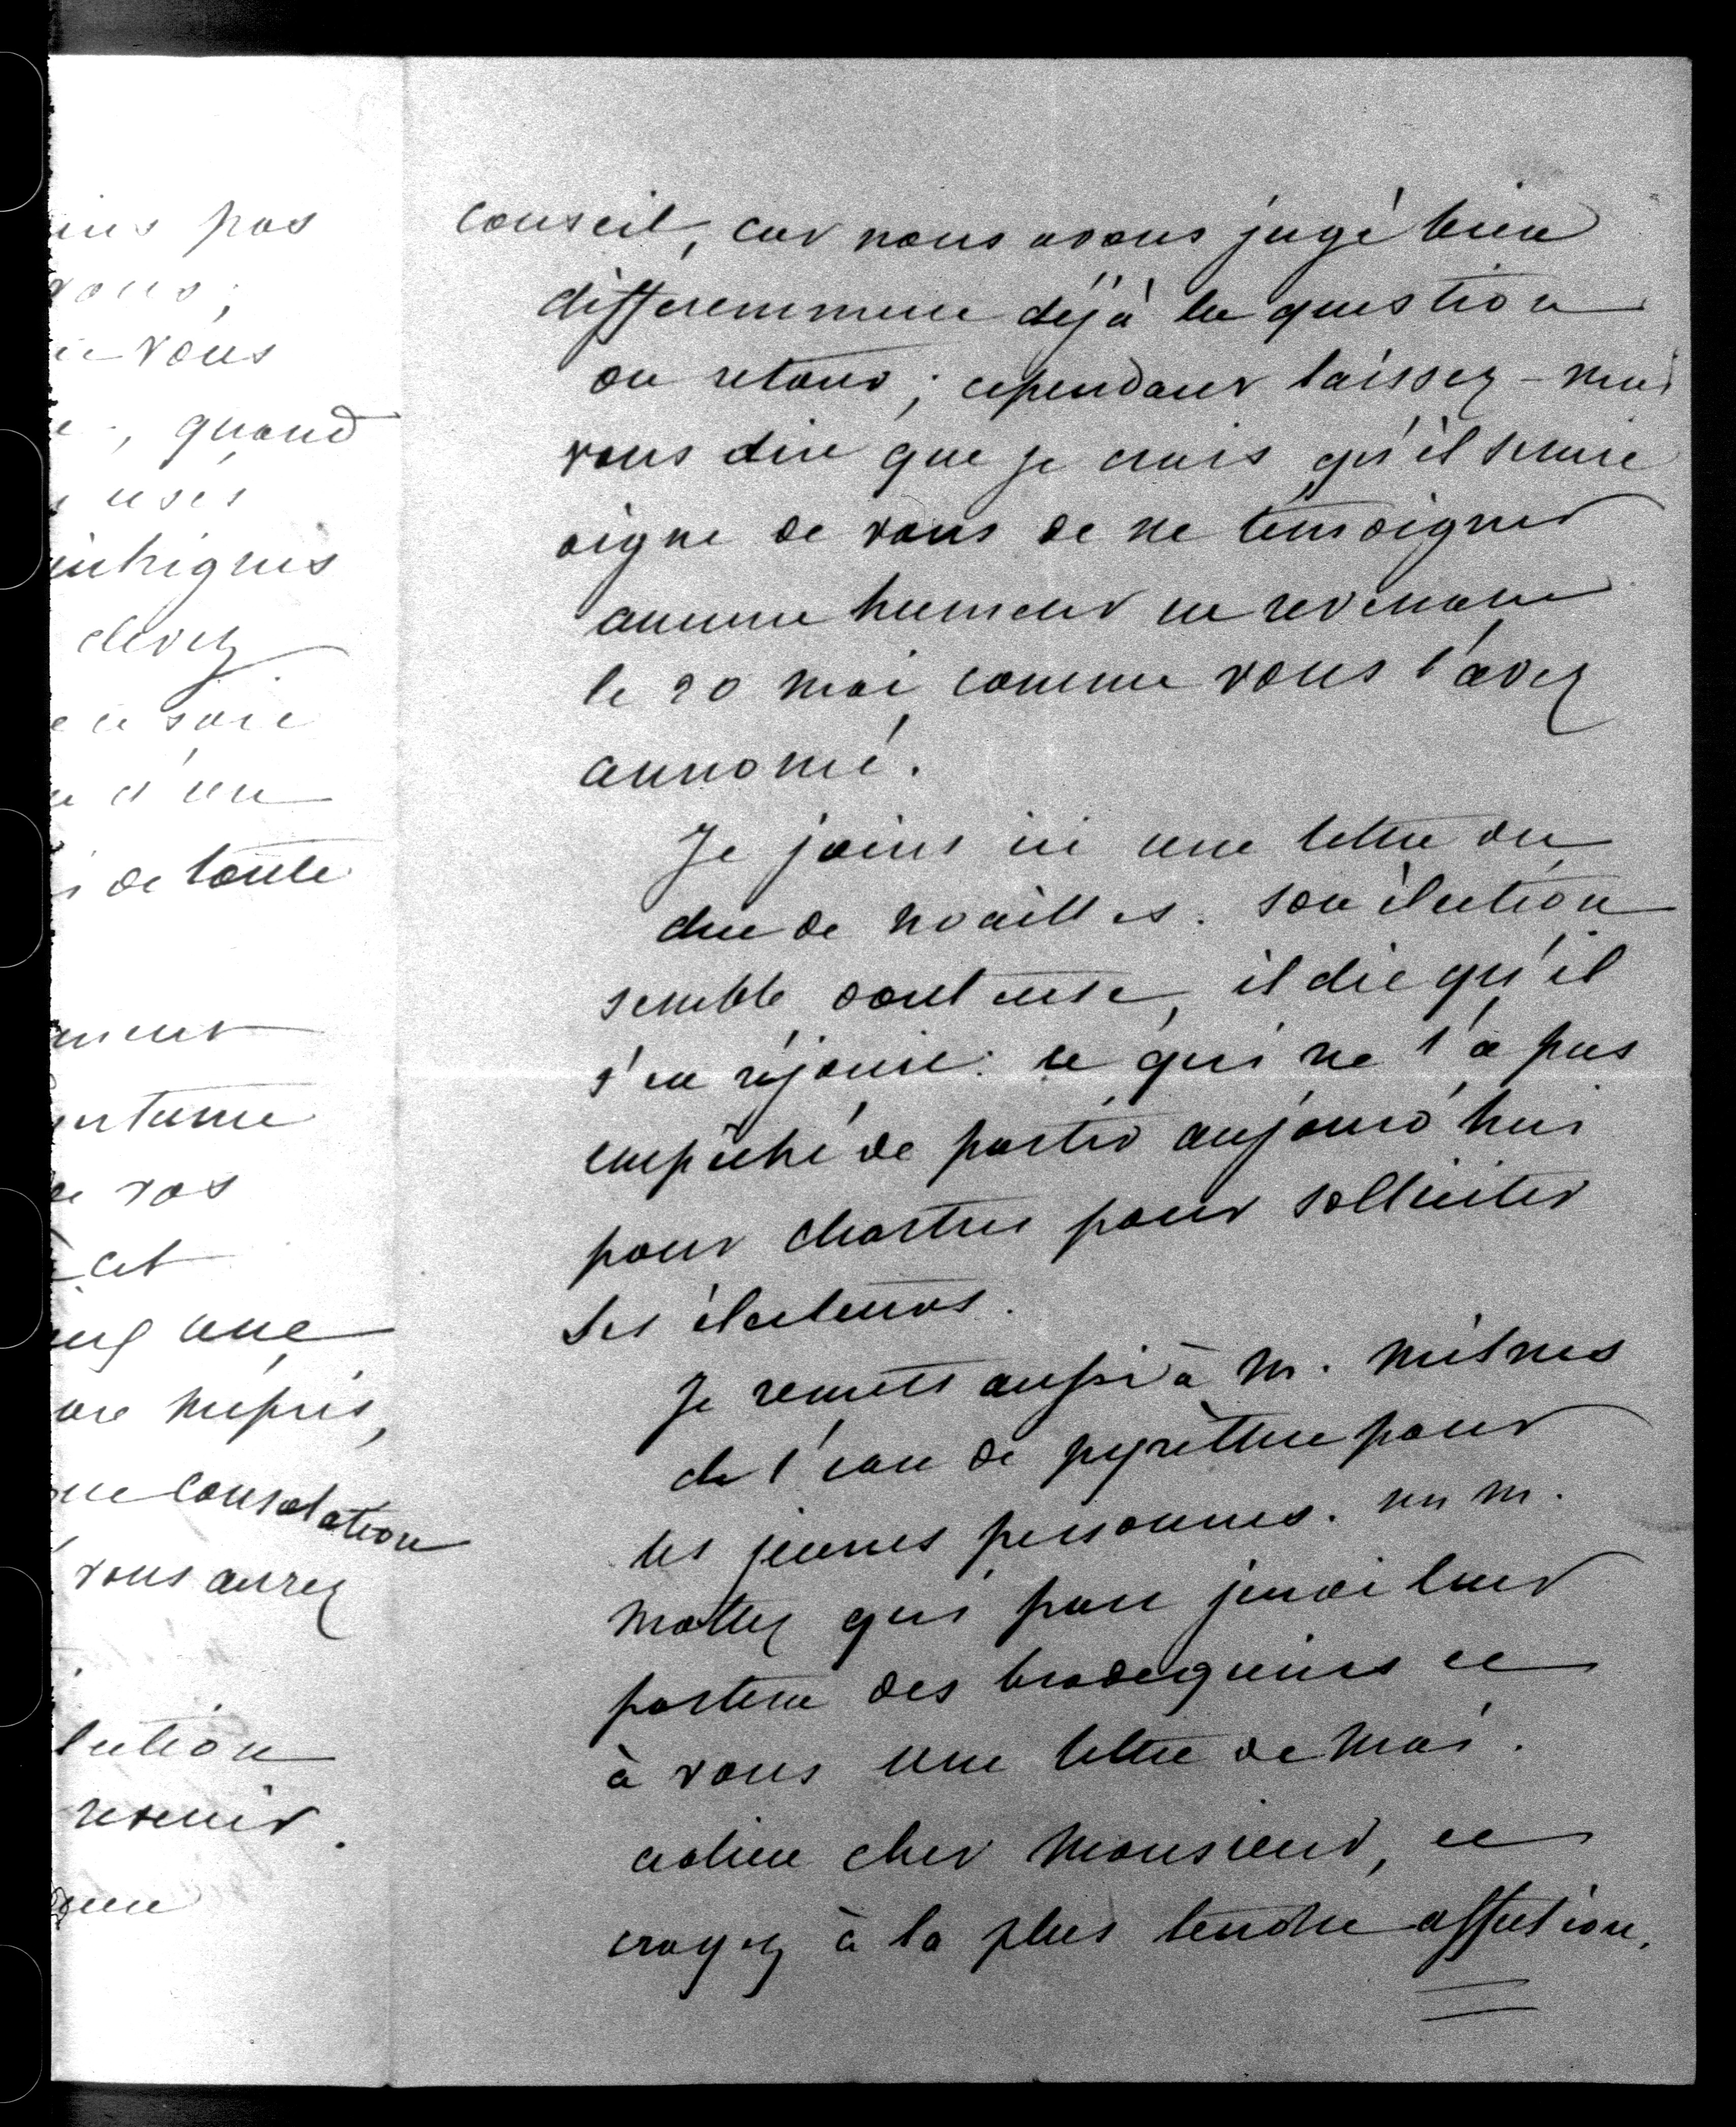 ins pas
vous,
vous
, quand
usés
intrigues
devez
ce soir
d'un
de toute
ument
ertume
vos
cet
une
mépris,
consolation
vous aurez
lution
revenir.
conseil, car nous avons jugé bien
differemment déjà la question
du retour ; cependant laissez-moi
vous dire que je crois qu'il serait
digne de vous de ne temoigner
aucune humeur en revenant
le 20 mai comme vous l'avez
annoncé.
Je joins ici une lettre du
duc de Noailles. Son élection
semble douteuse, il dit qu'il
s'en réjouit : ce qui ne l'a pas
empêché de partir aujourd'hui
pour Chartres pour solliciter
ses électeurs.
Je remets aussi à M. Milnes
de l'eau de pyrèthre pour
les jeunes personnes. un M.
Mottez qui part jeudi leur
portera des brodequins et
à vous une lettre de moi.
adieu cher Monsieur, et
croyez à la plus tendre affection.